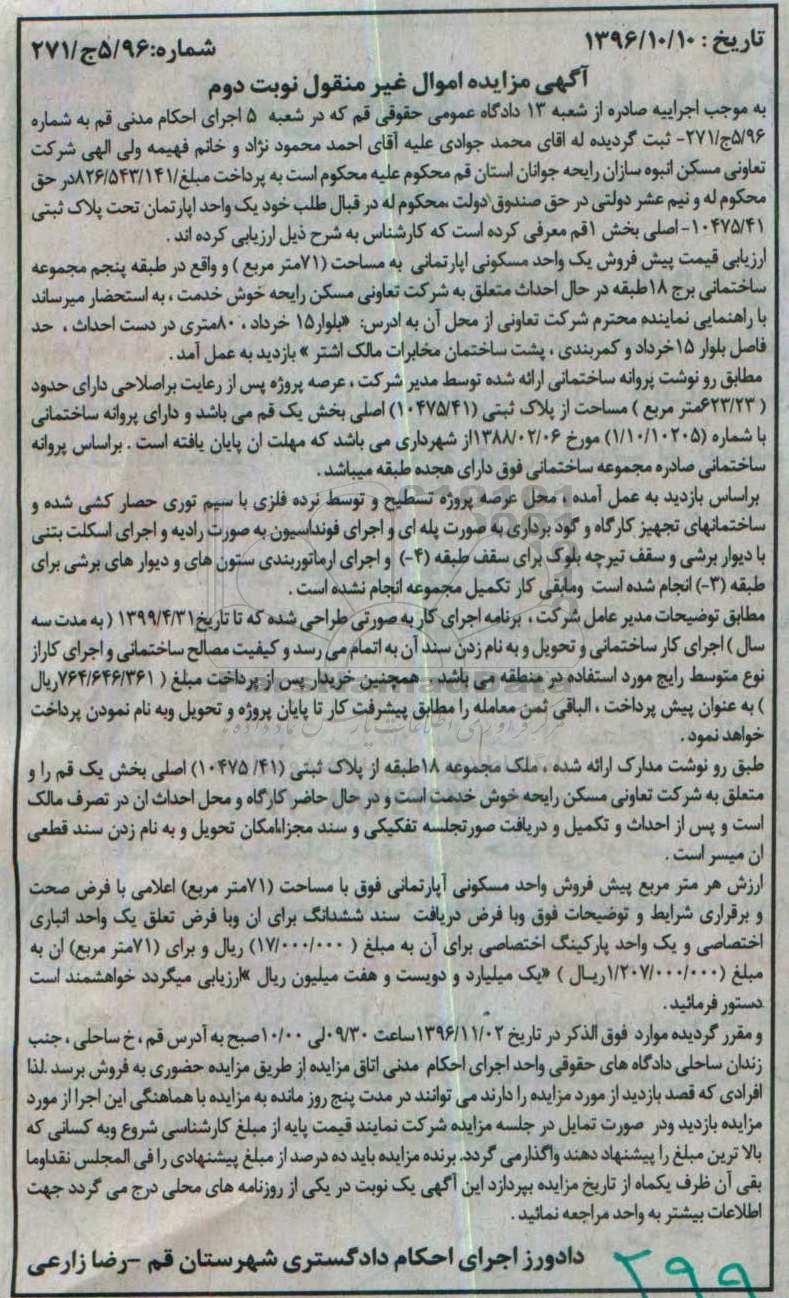 تاریخ : ۱۳۹۶/۱۰/۱۰
شماره:۵/۹۶ج/۲۷۱
آگهی مزایده اموال غیر منقول نوبت دوم
به موجب اجراییه صادره از شعبه ۱۳ دادگاه عمومی حقوقی قم که در شعبه ۵ اجرای احکام مدنی قم به شماره
۵/۹۶ج/۲۷۱- ثبت گردیده له اقای محمد جوادی علیه آقای احمد محمود نژاد و خانم فهیمه ولی الهی شرکت
تعاونی مسکن انبوه سازان رایحه جوانان استان قم محکوم علیه محکوم است به پرداخت مبلغ/۸۲۶/۵۴۳/۱۴۱در حق
محکوم له و نیم عشر دولتی در حق صندوق دولت ،محکوم له در قبال طلب خود یک واحد اپارتمان تحت پلاک ثبتی
۱۰۴۷۵/۴۱- اصلی بخش ۱قم معرفی کرده است که کارشناس به شرح ذیل ارزیابی کرده اند .
ارزیابی قیمت پیش فروش یک واحد مسکونی اپارتمانی به مساحت (۷۱متر مربع ) و واقع در طبقه پنجم مجموعه
ساختمانی برج ۱۸طبقه در حال احداث متعلق به شرکت تعاونی مسکن رایحه خوش خدمت ، به استحضار میرساند
با راهنمایی نماینده محترم شرکت تعاونی از محل آن به ادرس: «بلوار۱۵ خرداد ، ۸۰متری در دست احداث ، حد
فاصل بلوار ۱۵خرداد و کمربندی ، پشت ساختمان مخابرات مالک اشتر » بازدید به عمل آمد .
مطابق رو نوشت پروانه ساختمانی ارائه شده توسط مدیر شرکت ، عرصه پروژه پس از رعایت براصلاحی دارای حدود
( ۶۲۳/۲۳متر مربع ) مساحت از پلاک ثبتی (۱۰۴۷۵/۴۱) اصلی بخش یک قم می باشد و دارای پروانه ساختمانی
با شماره (۱/۱۰/۱۰۲۰۵) مورخ ۱۳۸۸/۰۲/۰۶از شهرداری می باشد که مهلت ان پایان یافته است . براساس پروانه
ساختمانی صادره مجموعه ساختمانی فوق دارای هجده طبقه میباشد .
براساس بازدید به عمل آمده ، محل عرصه پروژه تسطیح و توسط نرده فلزی با سیم توری حصار کشی شده و
ساختمانهای تجهیز کارگاه و گود برداری به صورت پله ای و اجرای فونداسیون به صورت رادیه و اجرای اسکلت بتنی
با دیوار برشی و سقف تیرچه بلوک برای سقف طبقه (۴-) و اجرای ارماتوربندی ستون های و دیوار های برشی برای
طبقه (۳-) انجام شده است ومابقی کار تکمیل مجموعه انجام نشده است .
مطابق توضیحات مدیر عامل شرکت ، برنامه اجرای کار به صورتی طراحی شده که تا تاریخ۱۳۹۹/۴/۳۱ ( به مدت سه
سال ) اجرای کار ساختمانی و تحویل و به نام زدن سند آن به اتمام می رسد و کیفیت مصالح ساختمانی و اجرای کاراز
نوع متوسط رایج مورد استفاده در منطقه می باشد . همچنین خریدار پس از پرداخت مبلغ ( ۷۶۴/۶۴۶/۳۶۱ریال
) به عنوان پیش پرداخت ، الباقی ثمن معامله را مطابق پیشرفت کار تا پایان پروژه و تحویل وبه نام نمودن پرداخت
خواهد نمود .
طبق رو نوشت مدارک ارائه شده ، ملک مجموعه ۱۸طبقه از پلاک ثبتی (۱۰۴۷۵ /۴۱) اصلی بخش یک قم را و
متعلق به شرکت تعاونی مسکن رایحه خوش خدمت است و در حال حاضر کارگاه و محل احداث ان در تصرف مالک
است و پس از احداث و تکمیل و دریافت صورتجلسه تفکیکی و سند مجزا،امکان تحویل و به نام زدن سند قطعی
ان میسر است .
ارزش هر متر مربع پیش فروش واحد مسکونی آپارتمانی فوق با مساحت (۷۱متر مربع) اعلامی با فرض صحت
و برقراری شرایط و توضیحات فوق وبا فرض دریافت سند ششدانگ برای ان وبا فرض تعلق یک واحد انباری
اختصاصی و یک واحد پارکینگ اختصاصی برای آن به مبلغ ( ۱۷/۰۰۰/۰۰۰) ریال و برای (۷۱متر مربع) ان به
مبلغ (۱/۲۰۷/۰۰۰/۰۰۰ریال ) «یک میلیارد و دویست و هفت میلیون ریال »ارزیابی میگردد خواهشمند است
دستور فرمائید .
و مقرر گردیده موارد فوق الذکر در تاریخ ۱۳۹۶/۱۱/۰۲ساعت ۰۹/۳۰لی ۱۰/۰۰صبح به آدرس قم ، خ ساحلی ، جنب
زندان ساحلی دادگاه های حقوقی واحد اجرای احکام مدنی اتاق مزایده از طریق مزایده حضوری به فروش برسد .لذا
افرادی که قصد بازدید از مورد مزایده را دارند می توانند در مدت پنج روز مانده به مزایده با هماهنگی این اجرا از مورد
مزایده بازدید ودر صورت تمایل در جلسه مزایده شرکت نمایند قیمت پایه از مبلغ کارشناسی شروع وبه کسانی که
بالا ترین مبلغ را پیشنهاد دهند واگذارمی گردد. برنده مزایده باید ده درصد از مبلغ پیشنهادی را فی المجلس نقداوما
بقی آن ظرف یکماه از تاریخ مزایده بپردازد این آگهی یک نوبت در یکی از روزنامه های محلی درج می گردد جهت
اطلاعات بیشتر به واحد مراجعه نمائید .
دادورز اجرای احکام دادگستری شهرستان قم -رضا زارعی
۲۹۹